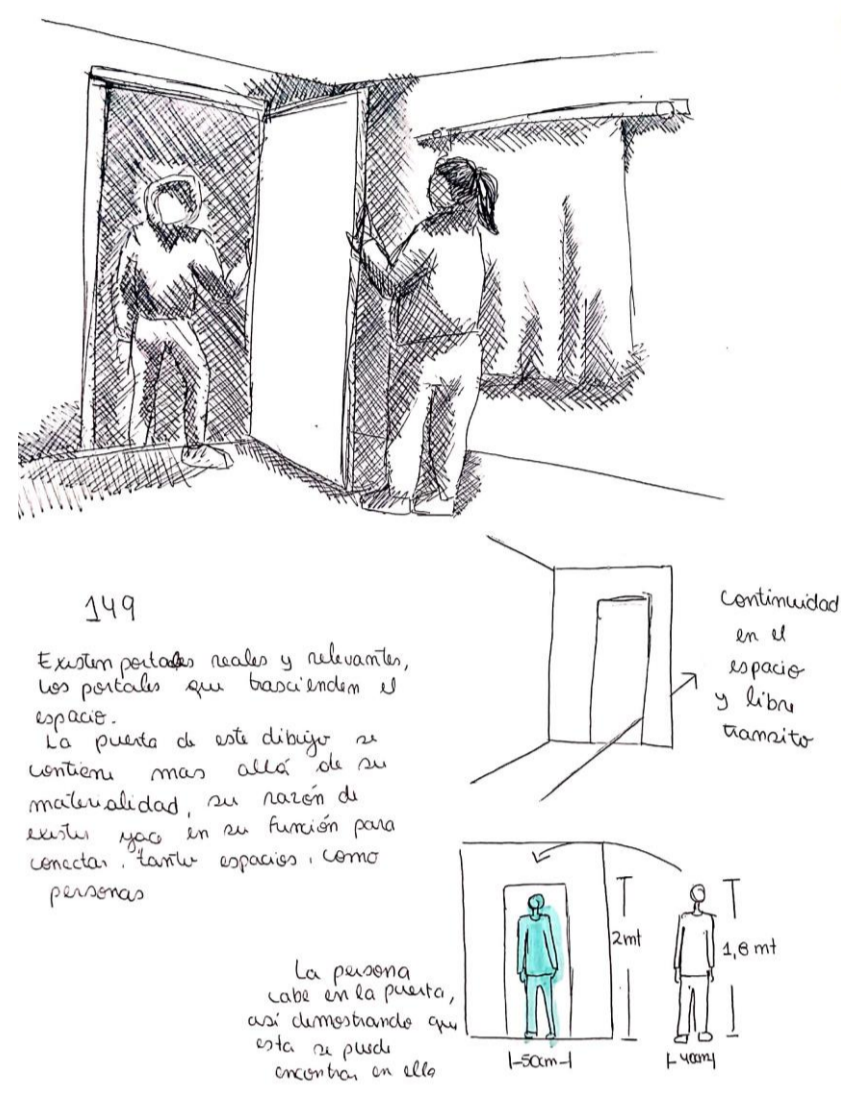 149
Existen portales reales y relevantes,
los portales que trascienden el
espacio.
La puerta de este dibujo se
contiene mas allá de su
materialidad, su razón de
existir yace en su función para
conectar, tanto espacios, como
personas
continuidad
en el
espacio
y libre
transito
La persona
cabe en la puerta,
así demostrando que
esta se puede
encontrar en ella
2mt
1,6 mt
50cm
40cm